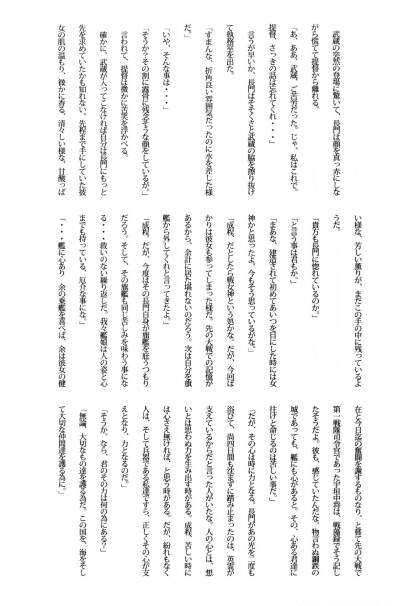 武蔵の突然の登場に驚いて、長門は顔を真っ赤にしな
がら慌てて提督から離れる。
「あ、ああ、武蔵、ご苦労だった。じゃ、私はこれで。
提督、さっきの話は忘れてくれ・・・」
言うが早いか、長門はそそくさと武蔵の脇を擦り抜け
て執務室を出た。
「すまんな、折角良い雰囲気だったのに水を差した様
だ。」
「いや、そんな事は・・・」
「そうか？その割に露骨に残念そうな顔をしているが。」
言われて、提督は微かに苦笑を浮かべる。
確かに、武蔵が入ってこなければ自分は長門にもっと
先を求めていたかも知れない。先程まで手にしていた彼
女の肌の温もり、微かに香る、清々しい様な、甘酸っぱ
い様な、芳しい薫りが、まだこの手の中に残っているよ
うだ。
「貴方も長門に惚れているのか。」
「と言う事は君もか。」
「まあな、建造されて初めてあいつを目にした時には女
神かと思ったよ。今もそう思っているがな。」
「成程、だとしたら戦女神という処かな。だが、今回ば
かりは彼女も参ってしまった様だ。先の大戦での記憶が
あるから、余計に居た堪れないのだろう。次は自分を旗
艦から外してくれと言ってきたよ。」
「成程。だが、今度はその長門自身が旗艦を庇うつもり
だろう。そして、その旗艦も同じ苦しみを味わう事にな
る・・・救いのない繰り返しだ。我々艦娘は人の姿と心
までも持っている。厄介な事にな。」
「・・・艦に心あり　余の乗艦を喜べば、余は彼女の健
在と今日迄の奮闘を謝するものなり、と嘗て先の大戦で
第一戦隊司令官であった宇垣中将は、戦藻録でそう記し
たそうだよ。彼も、感じていたんだな。物言わぬ鋼鉄の
城であっても、艦にも心があると。その、心ある君達に
往けと命じるのは苦しい事だ。」
「だが、その心は時に力となる。長門があの光を二度も
浴びて、尚四日間も沈まずに踏み止まったのは、英霊が
支えているからだと言った人がいたな。人の心とは、想
いとは思わぬ力を生み出す時がある。成程、苦しい時に
は心さえ無ければ、と思う時がある。だが、紛れもなく
人は、そして兵器である私達ですら、正しくその心が支
えとなり、力となるのだ。」
「そうか。なら、君のその力は何の為にある？」
「無論、大切なもの達を護る為だ。この国を、海をそし
て大切な仲間達を護る為に。」